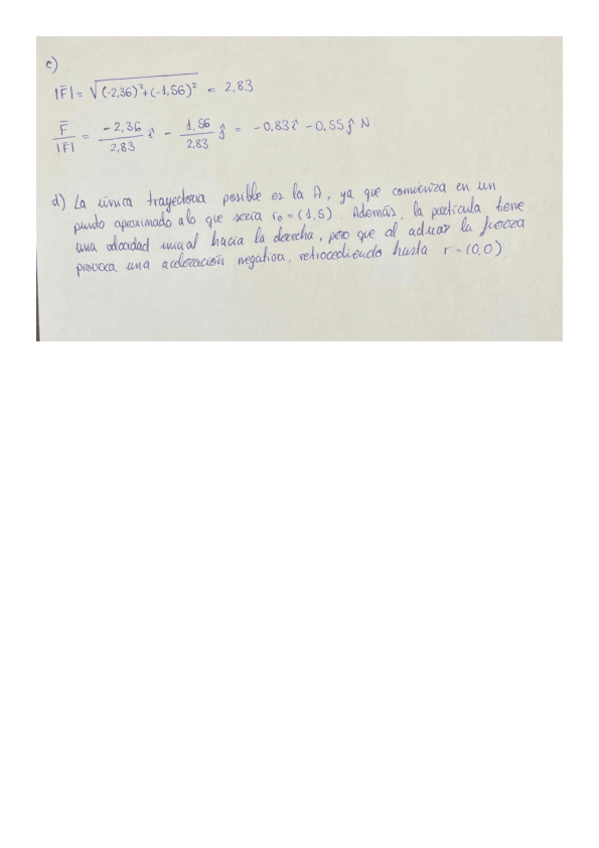 c)
|F̄| = √(-2,36)²+(-1,56)² = 2,83
F̄/|F̄| = -2,36/2,83 î - 1,56/2,83 ĵ = -0,83 î - 0,55 ĵ N
d) La única trayectoria posible es la A, ya que comienza en un
punto aproximado a lo que sería r₀ = (1,5). Además, la partícula tiene
una velocidad inicial hacia la derecha, pero que al actuar la fuerza
provoca una aceleración negativa, retrocediendo hasta r - (0,0).